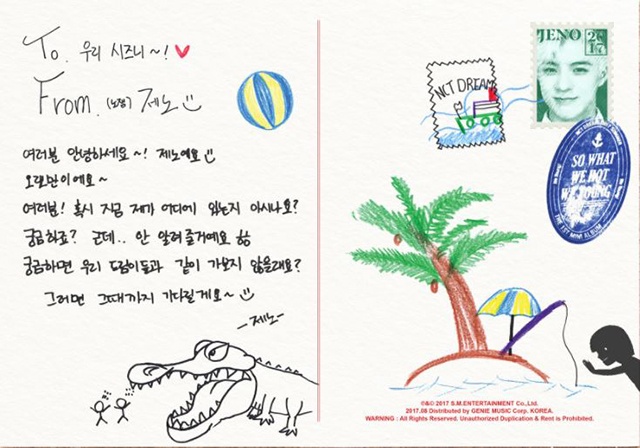 To. 우리 시즈니~! ♥
From. (노잼) 제노
여러분 안녕하세요~! 제노예요
오랜만이에요~
여러분! 혹시 지금 제가 어디에 있는지 아시나요?
궁금하죠? 근데.. 안 알려줄거예요
궁금하면 우리 드림이들과 같이 가보지 않을래요?
그러면 그때까지 기다릴게요~
-제노-
NCT DREAM
JENO
2017
SO WHAT
WE HOT
WE YOUNG
THE 1ST MINI ALBUM
℗&© 2017 S.M.ENTERTAINMENT Co.,Ltd.
2017.08 Distributed by GENIE MUSIC Corp. KOREA.
WARNING : All Rights Reserved. Unauthorized Duplication & Rent is Prohibited.